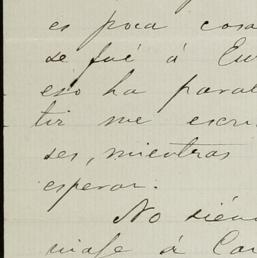 es poca cosa
se fué á Eu
eso ha paral
tir me escri
ses, mientras
esperar.
No
viaje á Car